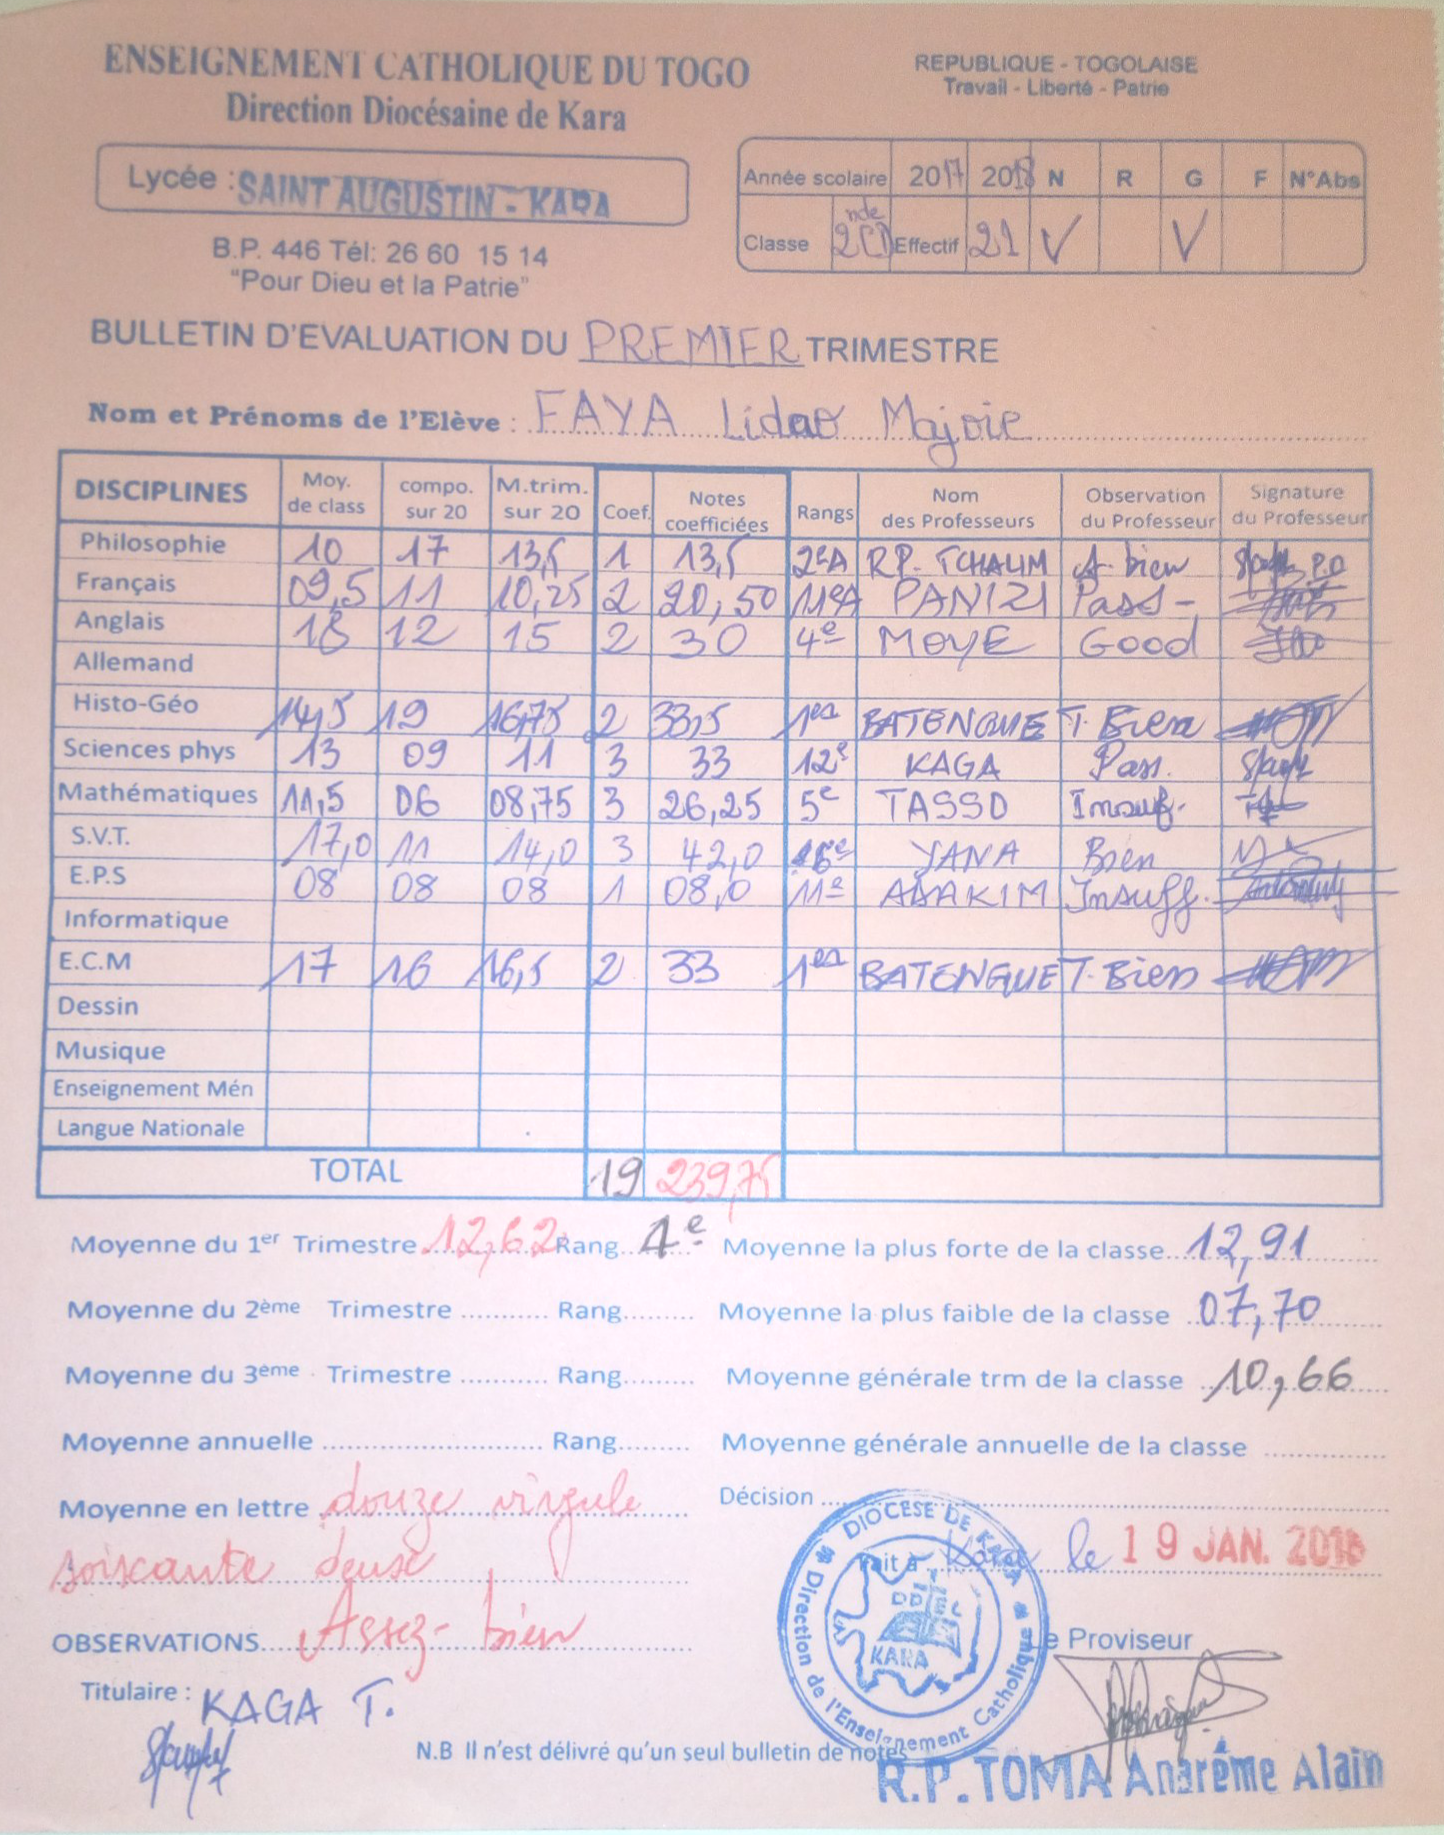 ENSEIGNEMENT CATHOLIQUE DU TOGO
Direction Diocésaine de Kara
REPUBLIQUE - TOGOLAISE
Travail - Liberté - Patrie
Lycée : SAINT AUGUSTIN - KARA
B.P. 446 Tél: 26 60 15 14
"Pour Dieu et la Patrie"
Année scolaire 2017 2018 N R G F N°Abs
Classe 2nde CD Effectif 21 V V
BULLETIN D'EVALUATION DU PREMIER TRIMESTRE
Nom et Prénoms de l'Elève : FAYA Lidao Majoie
DISCIPLINES Moy. de class compo. sur 20 M.trim. sur 20 Coef. Notes coefficiées Rangs Nom des Professeurs Observation du Professeur Signature du Professeur
Philosophie 10 17 13,5 1 13,5 2eA RP. TCHALIM A. bien P.O
Français 09,5 11 10,25 2 20,50 11eA PANIZI Pass-
Anglais 18 12 15 2 30 4e MOYE Good
Allemand
Histo-Géo 14,5 19 16,75 2 33,5 1er BATENGUE T. Bien
Sciences phys 13 09 11 3 33 12e KAGA Pass.
Mathématiques 11,5 06 08,75 3 26,25 5e TASSO Insuf.
S.V.T. 17,0 11 14,0 3 42,0 YANA Bien
E.P.S 08 08 08 1 08,0 11e ADAKIM Insuff.
Informatique
E.C.M 17 16 16,5 2 33 1er BATENGUE T. Bien
Dessin
Musique
Enseignement Mén
Langue Nationale
TOTAL 19 239,75
Moyenne du 1er Trimestre 12,62 Rang 4e Moyenne la plus forte de la classe 12,91
Moyenne du 2ème Trimestre Rang Moyenne la plus faible de la classe 07,70
Moyenne du 3ème Trimestre Rang Moyenne générale trm de la classe 10,66
Moyenne annuelle Rang Moyenne générale annuelle de la classe
Moyenne en lettre douze virgule
soixante deux
Décision
Fait à Kara le 19 JAN. 2018
OBSERVATIONS Assez-bien
DIOCESE DE KARA
Direction de l'Enseignement Catholique
DDEC
KARA
Le Proviseur
Titulaire : KAGA T.
N.B Il n'est délivré qu'un seul bulletin de notes
R.P. TOMA Anarême Alain